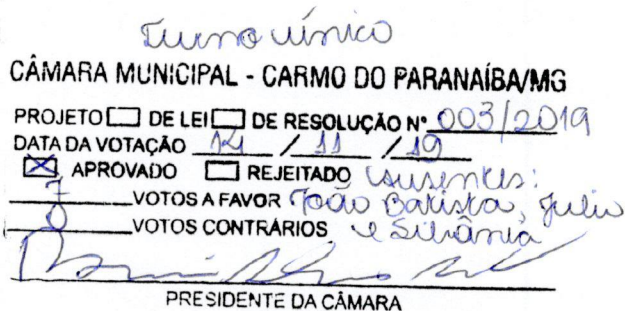 Turno único
CÂMARA MUNICIPAL - CARMO DO PARANAÍBA/MG
PROJETO DE LEI DE RESOLUÇÃO Nº 003/2019
DATA DA VOTAÇÃO 14 / 11 / 19
APROVADO REJEITADO Ausentes:
7 VOTOS A FAVOR João Batista, Julio
0 VOTOS CONTRÁRIOS e Silvânia
PRESIDENTE DA CÂMARA